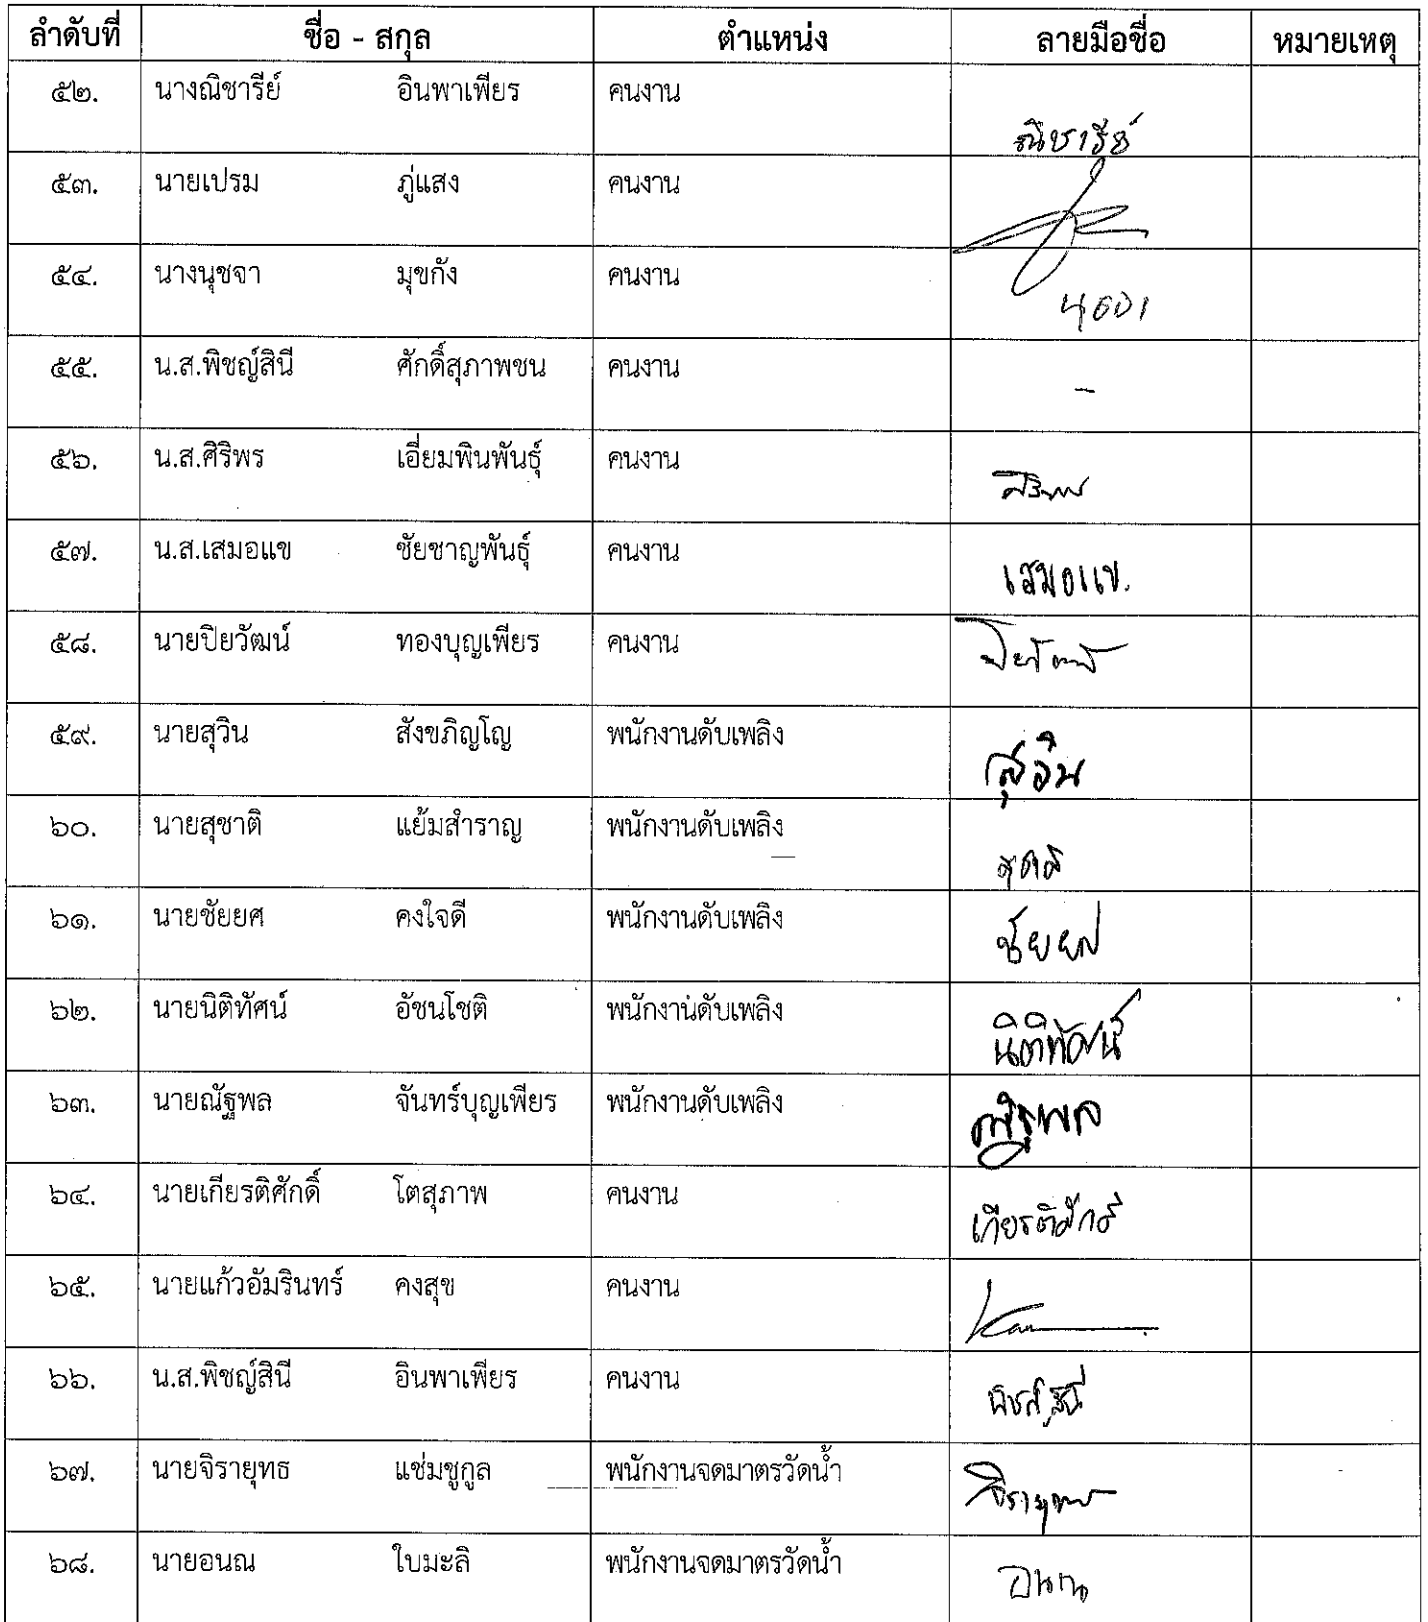 ลำดับที่ ชื่อ - สกุล ตำแหน่ง ลายมือชื่อ หมายเหตุ
๕๒. นางณิชารีย์ อินพาเพียร คนงาน ณิชารีย์
๕๓. นายเปรม ภู่แสง คนงาน
๕๔. นางนุชจา มุขกัง คนงาน นุชจา
๕๕. น.ส.พิชญ์สินี ศักดิ์สุภาพชน คนงาน -
๕๖. น.ส.ศิริพร เอี่ยมพินพันธุ์ คนงาน ศิริพร
๕๗. น.ส.เสมอแข ชัยชาญพันธุ์ คนงาน เสมอแข.
๕๘. นายปิยวัฒน์ ทองบุญเพียร คนงาน ปิยวัฒน์
๕๙. นายสุวิน สังขภิญโญ พนักงานดับเพลิง สุวิน
๖๐. นายสุชาติ แย้มสำราญ พนักงานดับเพลิง สุชาติ
๖๑. นายชัยยศ คงใจดี พนักงานดับเพลิง ชัยยศ
๖๒. นายนิติทัศน์ อัชนโชติ พนักงานดับเพลิง นิติทัศน์
๖๓. นายณัฐพล จันทร์บุญเพียร พนักงานดับเพลิง ณัฐพล
๖๔. นายเกียรติศักดิ์ โตสุภาพ คนงาน เกียรติศักดิ์
๖๕. นายแก้วอัมรินทร์ คงสุข คนงาน
๖๖. น.ส.พิชญ์สินี อินพาเพียร คนงาน พิชญ์สินี
๖๗. นายจิรายุทธ แช่มชูกูล พนักงานจดมาตรวัดน้ำ จิรายุทธ
๖๘. นายอนณ ใบมะลิ พนักงานจดมาตรวัดน้ำ อนณ